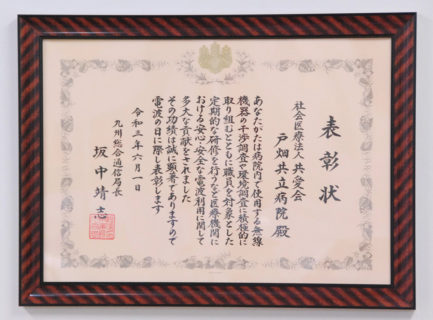 表彰状
社会医療法人 共愛会
戸畑共立病院 殿
あなたがたは病院内で使用する無線
機器の干渉調査や環境調査に積極的に
取り組むとともに職員を対象とした
定期的な研修を行うなど医療機関に
おける安心・安全な電波利用に関して
多大な貢献をされました
その功績は誠に顕著でありますので
電波の日に際し表彰します
令和三年六月一日
九州総合通信局長
坂中靖志